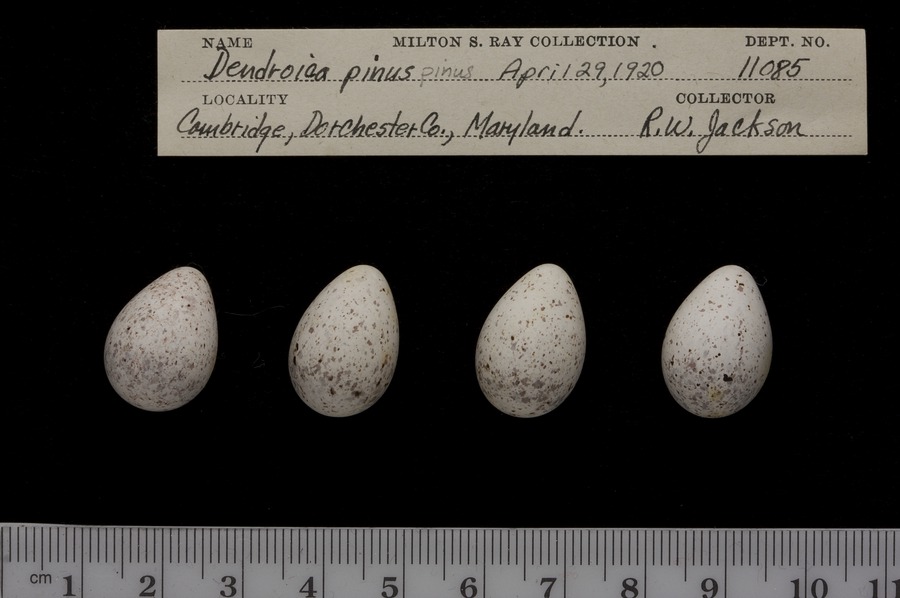 NAME MILTON S. RAY COLLECTION . DEPT. NO.
Dendroica pinus pinus April 29, 1920 11085
LOCALITY COLLECTOR
Cambridge, Dorchester Co., Maryland. R.W. Jackson
cm 1 2 3 4 5 6 7 8 9 10 11